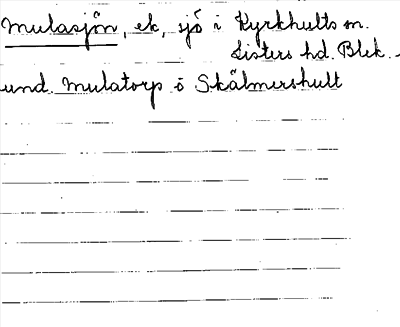 Mulasjön, ek, sjö i Kyrkhults sn.
Listers hd. Blek.
und. Mulatorp o Skälmershult